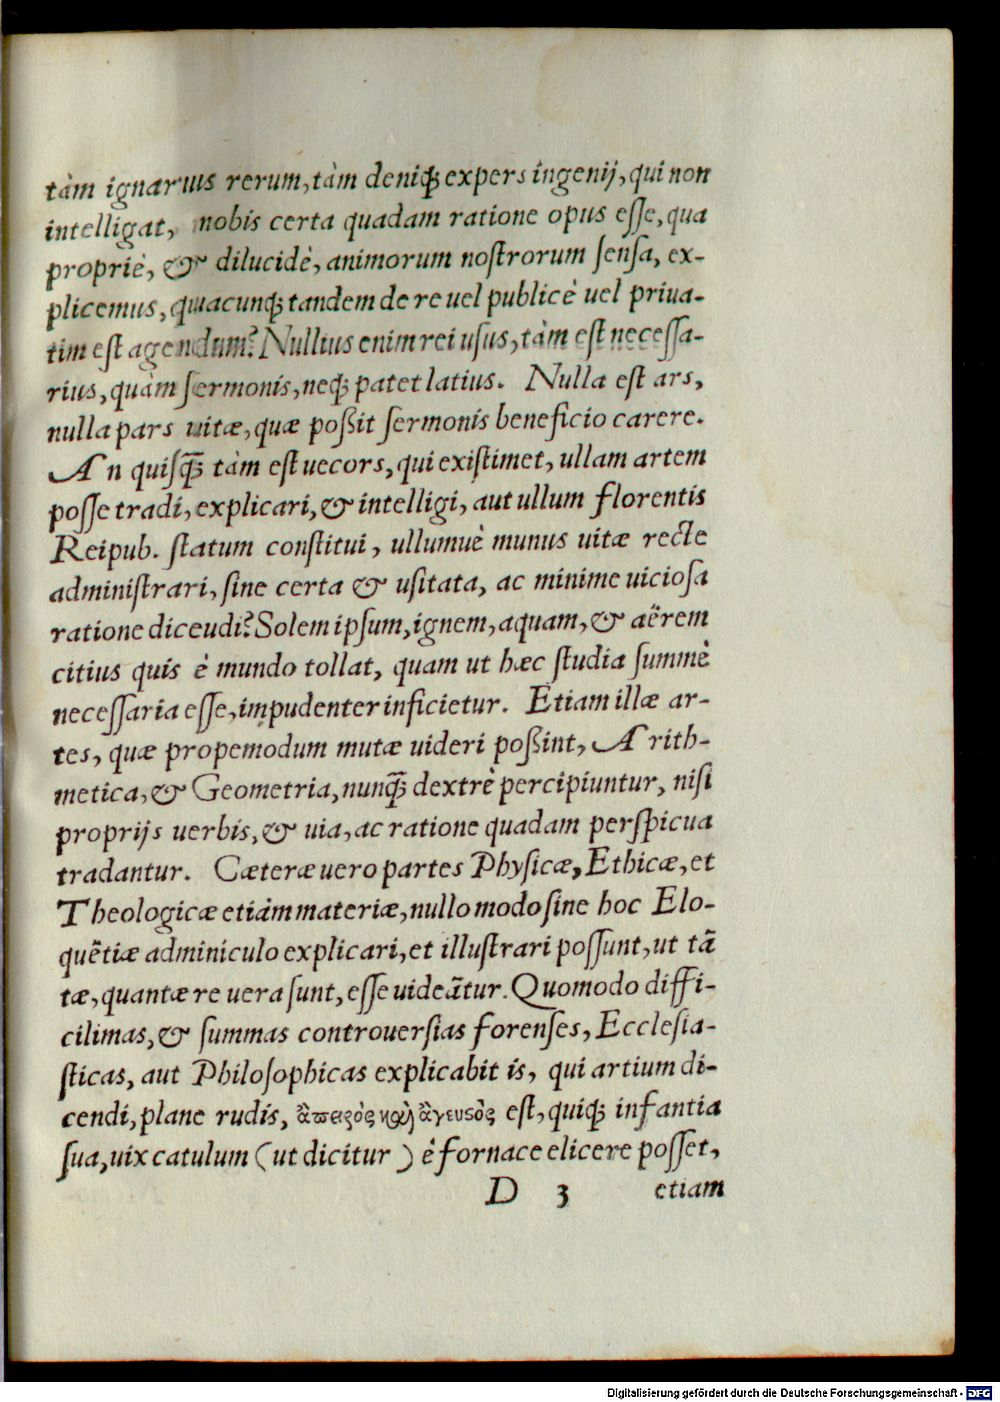 tàm ignarius rerum, tàm deniq́; expers ingenij, qui non
intelligat, nobis certa quadam ratione opus eſſe, qua
propriè, & dilucidè, animorum noſtrorum ſenſa, ex-
plicemus, quacunq́; tandem de re uel publicè uel priua-
tim eſt agendum? Nullius enim rei uſus, tàm eſt neceſſa-
rius, quàm ſermonis, neq́; patet latius. Nulla eſt ars,
nulla pars uitæ, quæ poßit ſermonis beneficio carere.
An quiſq̃; tàm eſt uecors, qui exiſtimet, ullam artem
poſſe tradi, explicari, & intelligi, aut ullum florentis
Reipub. ſtatum conſtitui, ullumuè munus uitæ recte
adminiſtrari, ſine certa & uſitata, ac minime uicioſa
ratione diceudi? Solem ipſum, ignem, aquam, & aërem
citius quis è mundo tollat, quam ut hæc ſtudia ſummè
neceſſaria eſſe, impudenter inficietur. Etiam illæ ar-
tes, quæ propemodum mutæ uideri poßint, Arith-
metica, & Geometria, nunq̃; dextrè percipiuntur, niſi
proprijs uerbis, & uia, ac ratione quadam perſpicua
tradantur. Cæteræ uero partes Phyſicæ, Ethicæ, et
Theologicæ etiàm materiæ, nullo modo ſine hoc Elo-
quẽtiæ adminiculo explicari, et illuſtrari poſſunt, ut tã
tæ, quantæ re uera ſunt, eſſe uideãtur. Quomodo diffi-
cilimas, & ſummas controuerſias forenſes, Eccleſia-
ſticas, aut Philoſophicas explicabit is, qui artium di-
cendi, plane rudis, ἄπειρὸς καὶ ἄγευσὸς eſt, quiq́; infantia
ſua, uix catulum (ut dicitur) è fornace elicere poſſet,
D 3 etiam
Digitalisierung gefördert durch die Deutsche Forschungsgemeinschaft - DFG